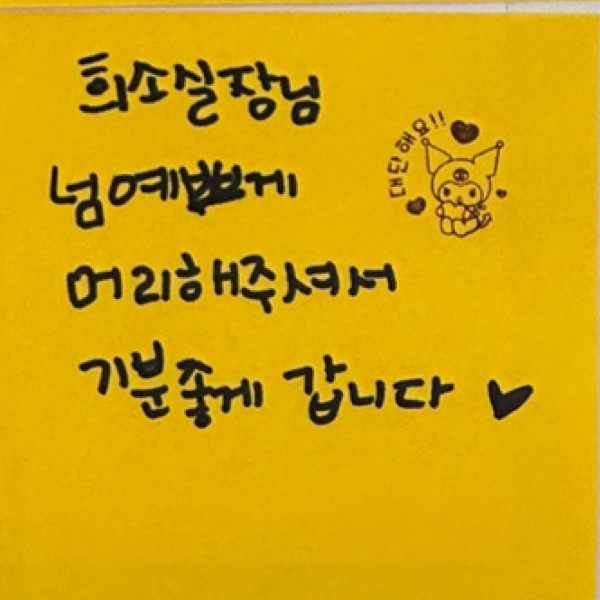 희소실장님
대단해요!!
넘예쁘게
머리해주셔서
기분좋게 갑니다 ♥